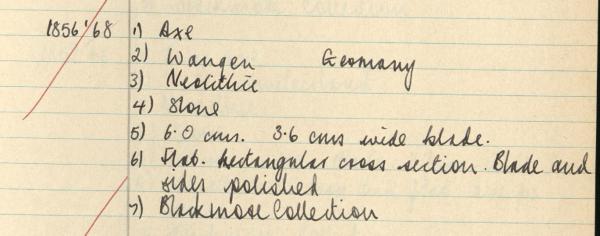 1856'68 1) Axe
2) Wangen Germany
3) Neolithic
4) Stone
5) 6.0 cms. 3.6 cms wide blade.
6) Flat. Rectangular cross section. Blade and
sides polished
7) Blackmore Collection